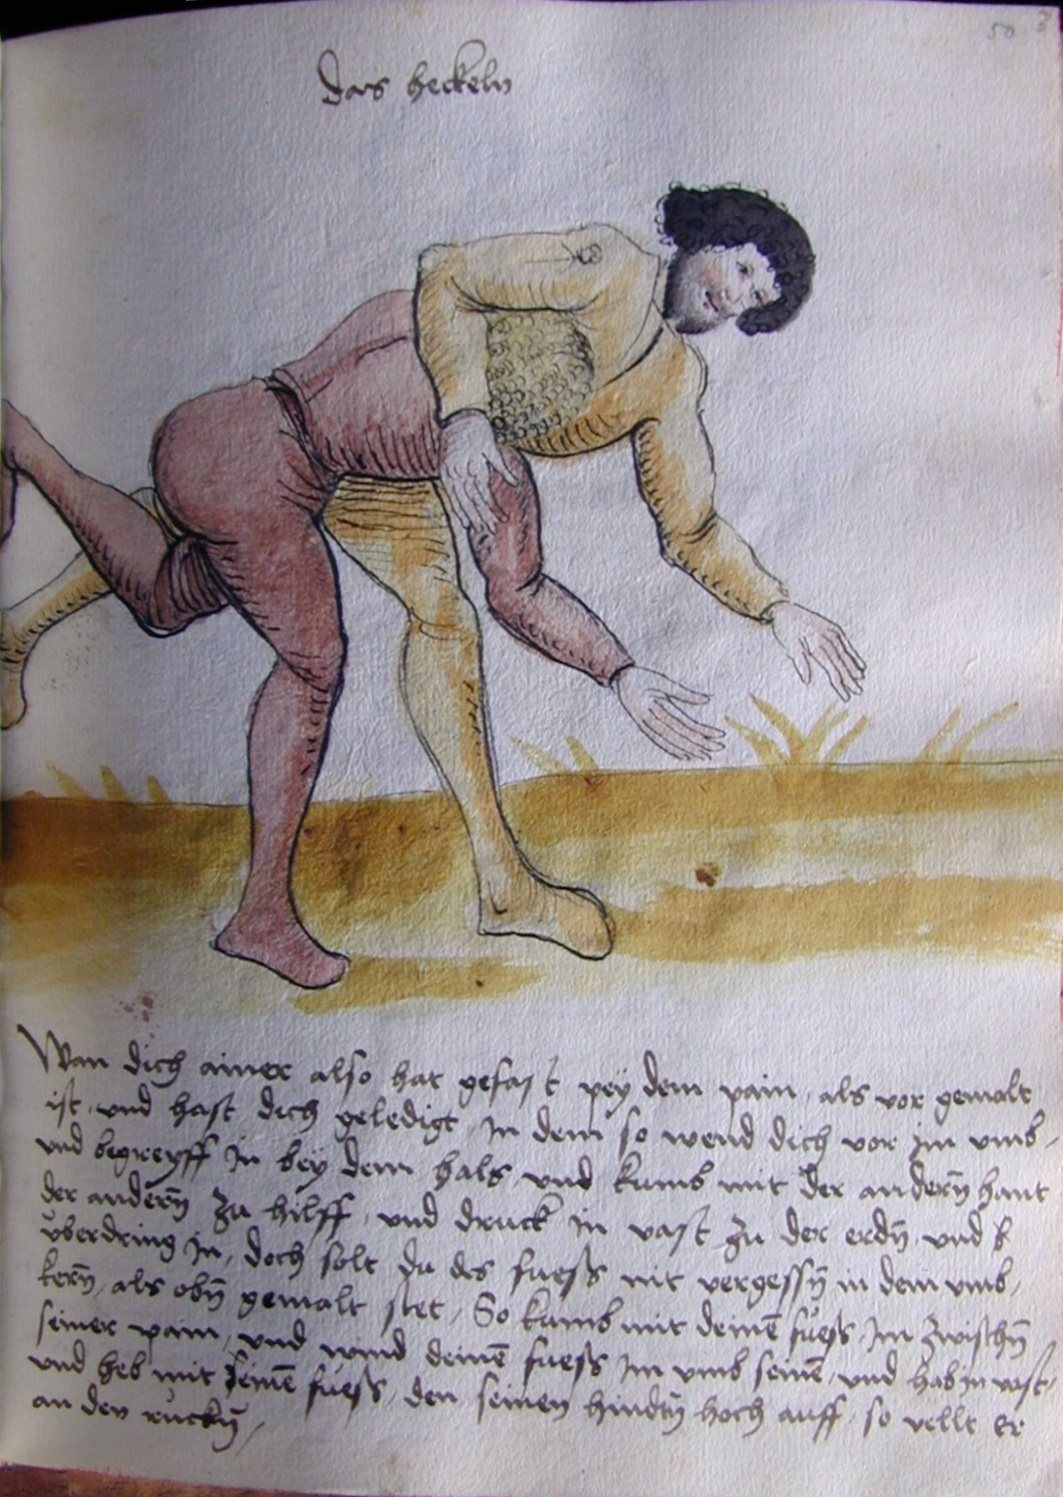 50 3
das heckeln
Wan dich ainer also hat gefast pey dem pain, als vor gemalt
ist, und hast dich geledigt, In dem so wend dich vor im umb,
und begreyff In bey dem hals, und kumb mit der andern̄ hant
der andern̄ zu hilff, und druck in vast zu der erdn̄, und
uberdring In, doch solt du des fuess nit vergessn̄ in dem umb,
kern̄, als obn̄ gemalt stet, So kumb mit deinē fuess, Im zwischn̄
seiner pain, und wind deinē fuess Im umb seinē, und hab in vast,
und heb mit deinē fuess, den seinen hindn̄ hoch auff, so vellt er
an den ruckn̄,